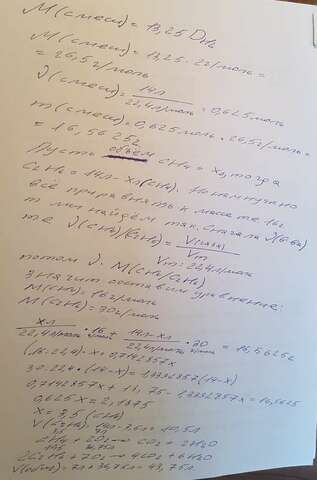 M(смеси) = 13,25 D H₂
M(смеси) = 13,25 · 2г/моль =
= 26,5г/моль
ν(смеси) = 14л / 22,4л/моль = 0,625моль
m(смеси) = 0,625моль · 26,5г/моль =
= 16,5625г
Пусть объём CH₄ = xл, тогда
C₂H₆ = 14л - xл(CH₄). Но нам нужно
всё приравнять к массе. Их
m мы найдём так. Сначала ν(в-ва)
те ν(CH₄/C₂H₆) = V(газа) / Vm
Vm: 22,4л/моль
потом ν · M(CH₄/C₂H₆)
значит составим уравнение:
M(CH₄) = 16г/моль
M(C₂H₆) = 30г/моль
xл / 22,4л/моль · 16 г/моль + 14л-xл / 22,4л/моль · 30 г/моль = 16,5625г
(16:22,4) · x = 0,7142857x
30:22,4 · (14-x) = 1,3392857(14-x)
0,7142857x + 18,75 - 1,3392857x = 16,5625
0,625x = 2,1875
x = 3,5 (CH₄)
V(C₂H₆) = 14л - 3,5л = 10,5л
CH₄ + 2O₂ → CO₂ + 2H₂O
2C₂H₆ + 7O₂ → 4CO₂ + 6H₂O
V(общ) = 7л + 36,75л = 43,75л